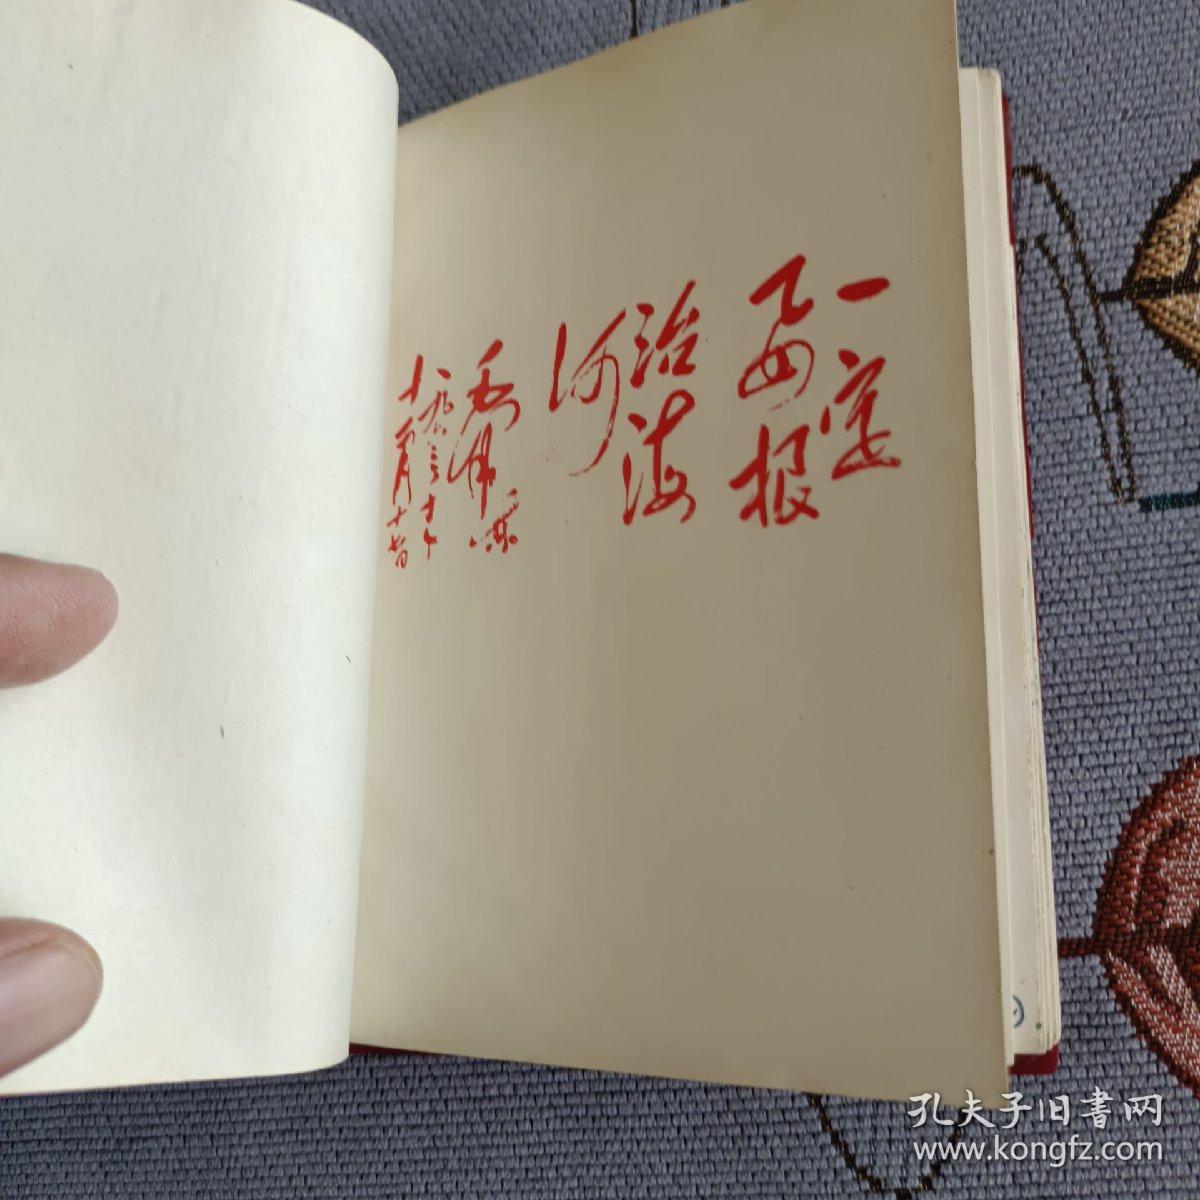 一定
要根
治海
河
毛泽东
一九六三年
十一月十七日
孔夫子旧書网
www.kongfz.com